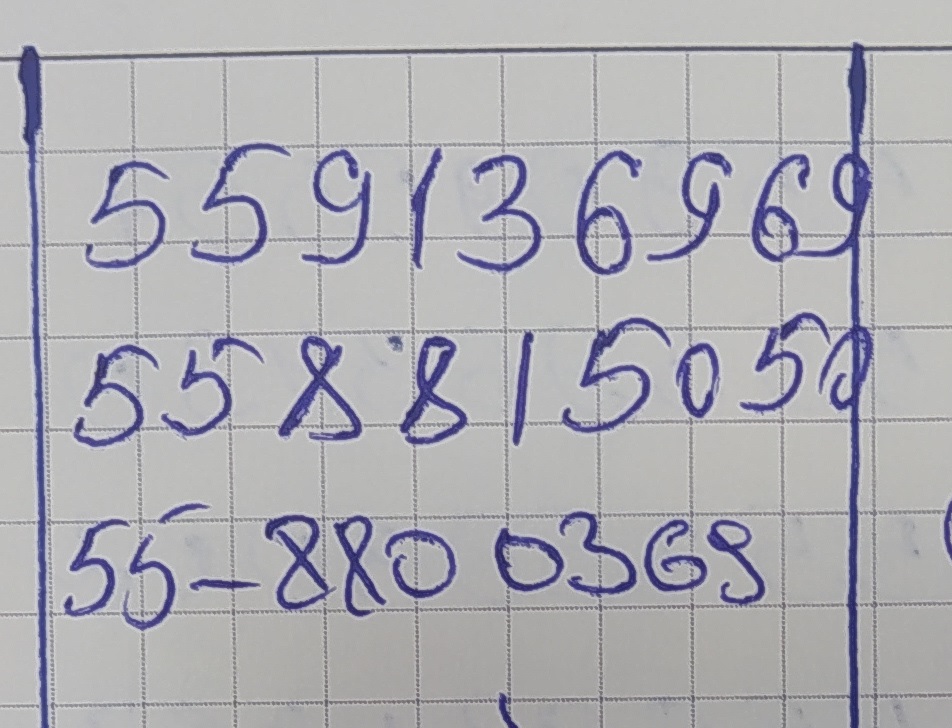 559136969
558815050
55-8800369